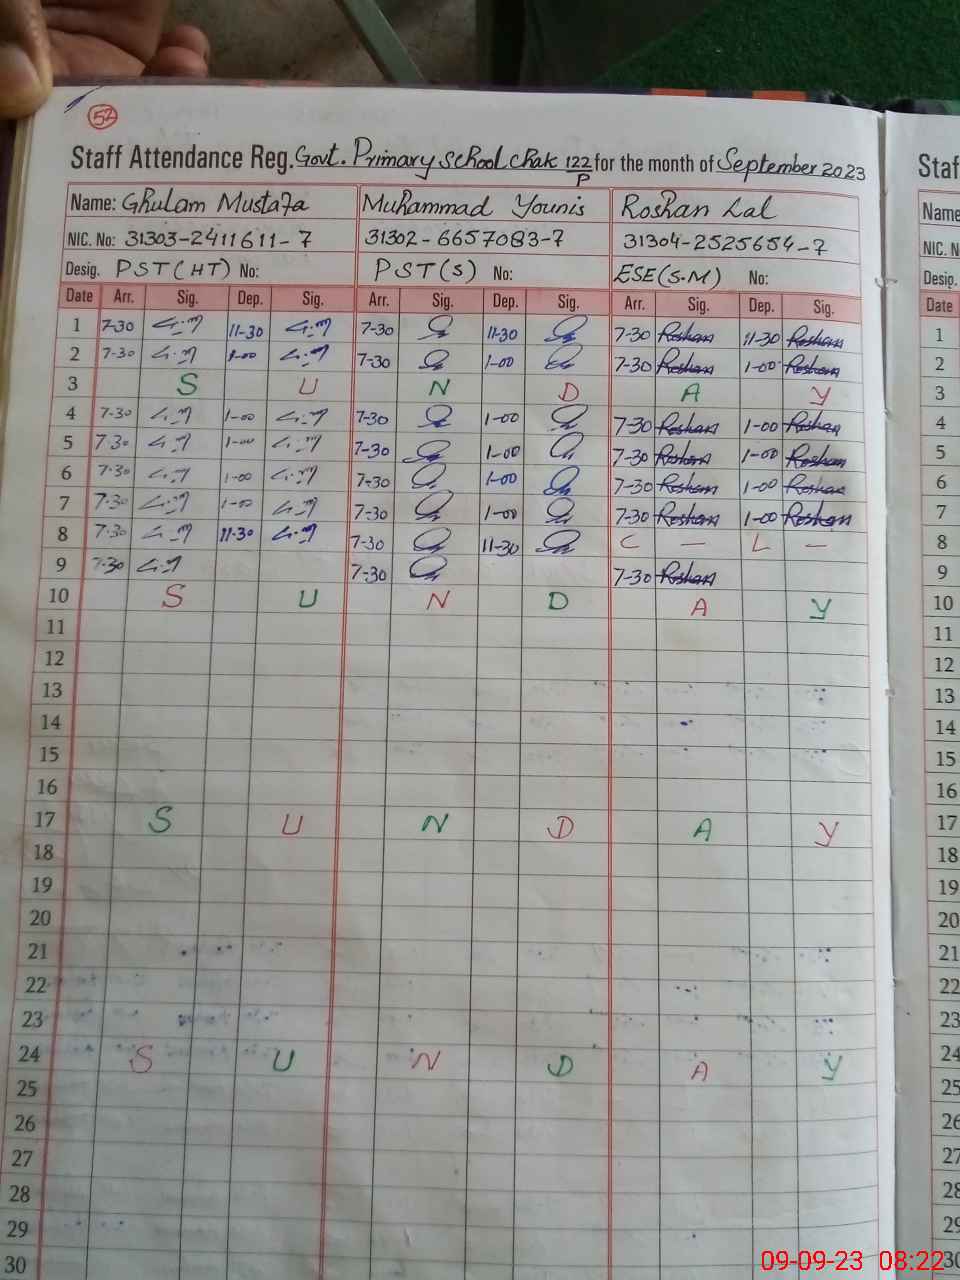 52
Staff Attendance Reg. Govt. Primary school chak 122/P for the month of September 2023
Name: Ghulam Mustafa Muhammad Younis Roshan Lal
NIC. No: 31303-2411611-7 31302-6657083-7 31304-2525654-7
Desig. PST(HT) No: PST(S) No: ESE(S.M) No:
Date Arr. Sig. Dep. Sig. Arr. Sig. Dep. Sig. Arr. Sig. Dep. Sig.
1 7-30 11-30 7-30 11-30 7-30 Roshan 11-30 Roshan
2 7-30 1-00 7-30 1-00 7-30 Roshan 1-00 Roshan
3 S U N D A Y
4 7-30 1-00 7-30 1-00 7-30 Roshan 1-00 Roshan
5 7-30 1-00 7-30 1-00 7-30 Roshan 1-00 Roshan
6 7-30 1-00 7-30 1-00 7-30 Roshan 1-00 Roshan
7 7-30 1-00 7-30 1-00 7-30 Roshan 1-00 Roshan
8 7-30 11-30 7-30 11-30 C — L —
9 7-30 7-30 7-30 Roshan
10 S U N D A Y
11
12
13
14
15
16
17 S U N D A Y
18
19
20
21
22
23
24 S U N D A Y
25
26
27
28
29
30
Staf
Name
NIC. N
Desig.
Date
1
2
3
4
5
6
7
8
9
10
11
12
13
14
15
16
17
18
19
20
21
22
23
24
25
26
27
28
29
30
09-09-23 08:22